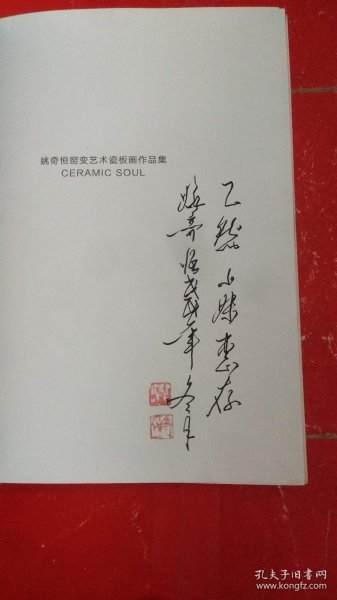 姚奇恒窑变艺术瓷板画作品集
CERAMIC SOUL
小妹惠存
姚奇恒戊戌年冬月
孔夫子旧书网
www.kongfz.com